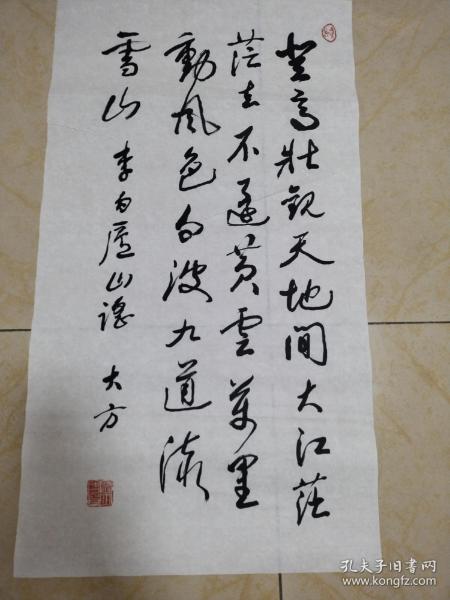 登高壮觀天地間大江茫
茫去不還黄雲萬里
動風色白波九道流
雪山 李白廬山謠 大方
孔夫子旧书网
www.kongfz.com